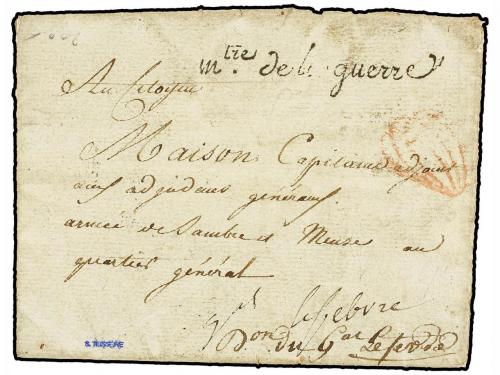 m.tre de la guerre
Au Citoyen
Maison Capitaine adjoint
aux adjudans généraux
armée de Sambre et Meuse au
quartier général
lefebvre
Don du Gal Lefebvre